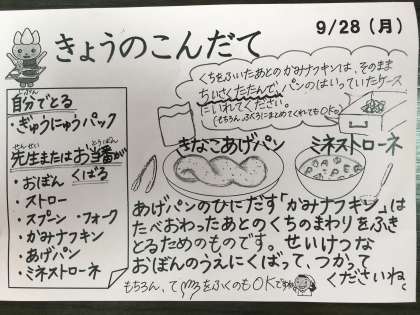 9/28(月)
きょうのこんだて
くちをふいたあとのかみナフキンは、そのまま
ちいさくたたんで、パンのはいっていたケース
にいれてください。
(もちろん、ふくろにまとめてくれてもOK。)
自分でとる
じぶん
・ぎゅうにゅうパック
せんせい とうばん
先生またはお当番が
くばる
・おぼん
・ストロー
・スプーン ・フォーク
・かみナフキン
・あげパン
・ミネストローネ
きなこあげパン
ミネストローネ
あげパンのひにだす「かみナフキン」は
たべおわったあとのくちのまわりをふき
とるためのものです。せいけつな
おぼんのうえにくばって、つかって
くださいね。
もちろん、てをふくのもOKですね